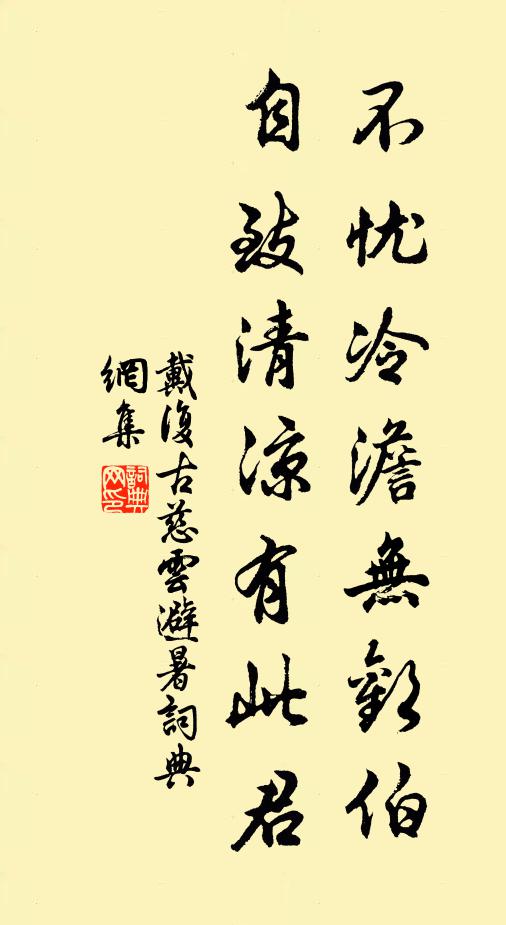 不忧冷澹無歡伯
自致清凉有此君
戴復古慈雲避暑詞典
網集
詞典
网印